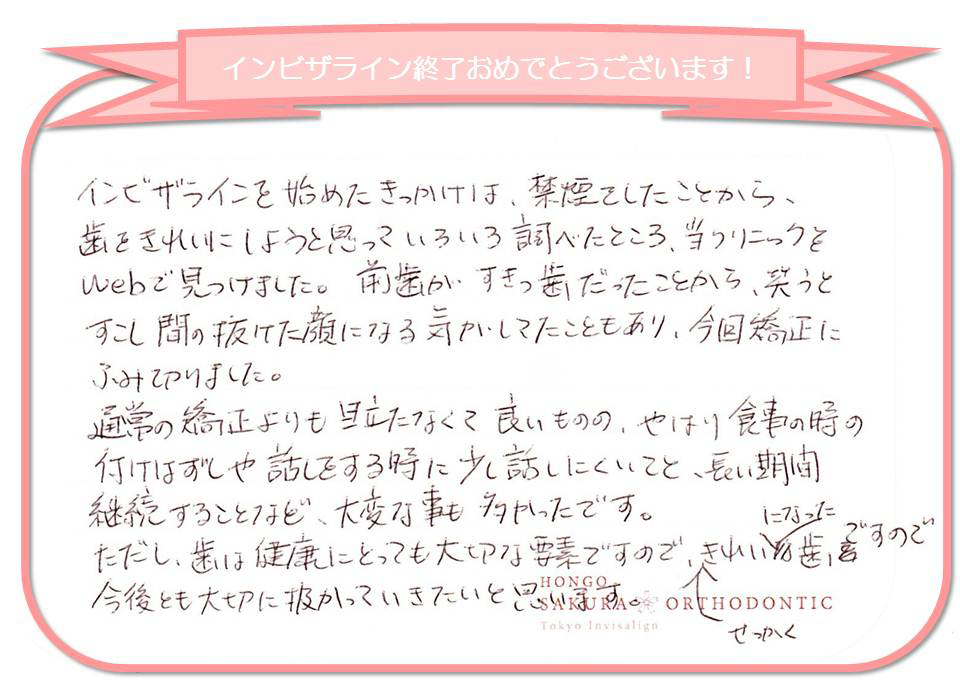 インビザライン終了おめでとうございます！
インビザラインを始めたきっかけは、禁煙をしたことから、
歯をきれいにしようと思っていろいろ調べたところ、当クリニックを
Webで見つけました。前歯がすきっ歯だったことから、笑うと
すこし間の抜けた顔になる気がしてたこともあり、今回矯正に
ふみ切りました。
通常の矯正よりも目立たなくて良いものの、やはり食事の時の
付けはずしや話しをする時に少し話しにくいこと、長い期間
継続することなど、大変な事も多かったです。
になった
ただし、歯は健康にとっても大切な要素ですので、きれい歯ですので
今後とも大切に扱かっていきたいと思います。
せっかく
HONGO
SAKURA ORTHODONTIC
Tokyo Invisalign